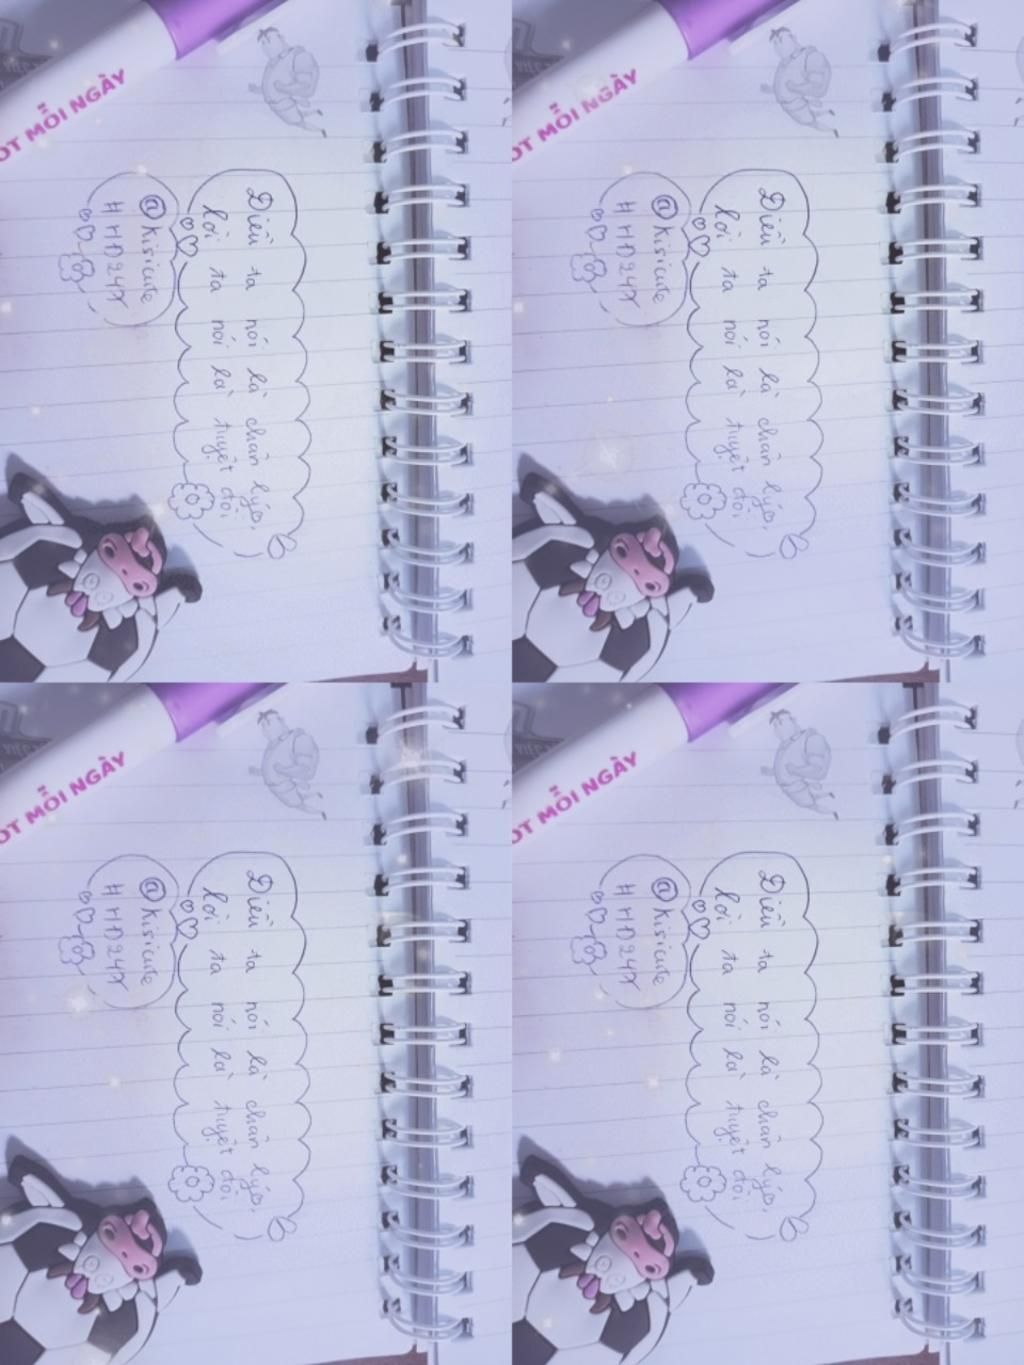 OT MỖI NGÀY
Điều ta nói là chân lý,
lời ta nói là tuyệt đối
@kisicute
#HD247
OT MỖI NGÀY
Điều ta nói là chân lý,
lời ta nói là tuyệt đối
@kisicute
OT MỖI NGÀY
Điều ta nói là chân lý,
lời ta nói là tuyệt đối
@kisicute
OT MỖI NGÀY
Điều ta nói là chân lý,
lời ta nói là tuyệt đối
@kisicute